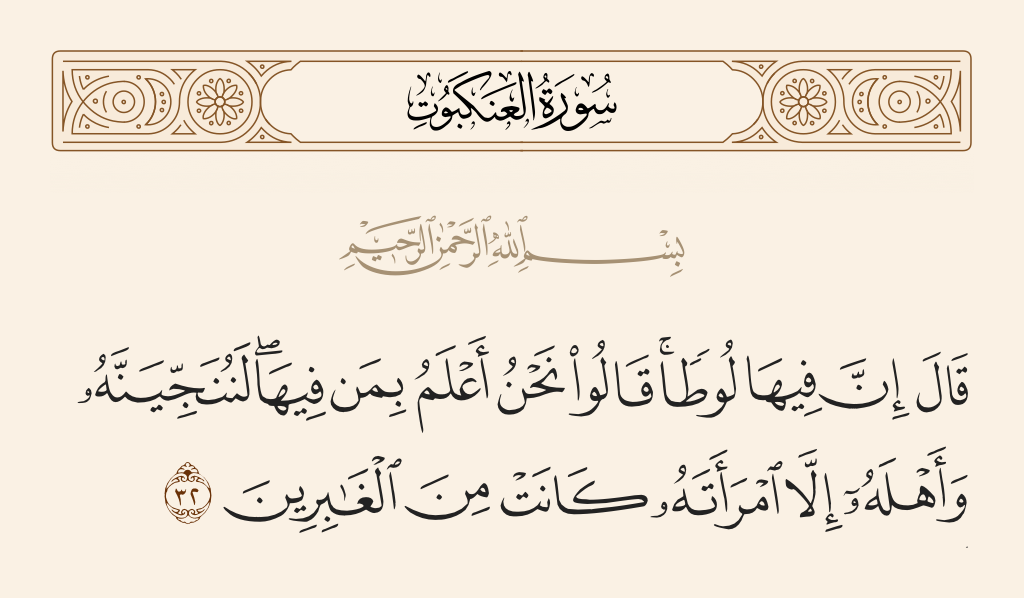 سُورَةُ الْعَنكَبُوتِ
بِسْمِ ٱللَّهِ ٱلرَّحْمَٰنِ ٱلرَّحِيمِ
قَالَ إِنَّ فِيهَا لُوطًا ۚ قَالُوا۟ نَحْنُ أَعْلَمُ بِمَن فِيهَا ۖ لَنُنَجِّيَنَّهُۥ
وَأَهْلَهُۥٓ إِلَّا ٱمْرَأَتَهُۥ كَانَتْ مِنَ ٱلْغَٰبِرِينَ ٣٢